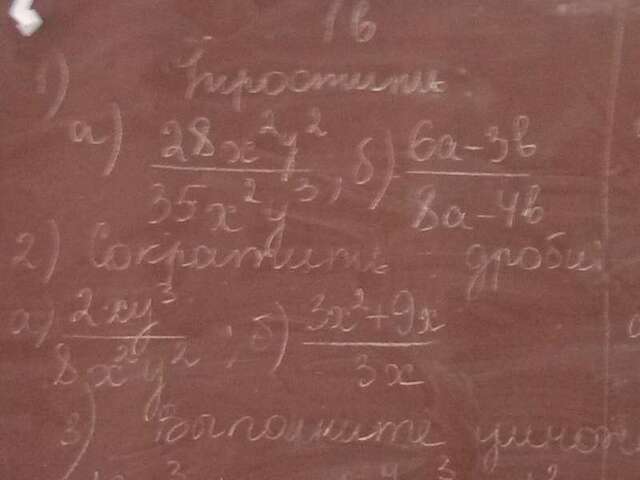 1в
1) Упростить:
а) 28x²y² / 35x²y³; б) 6a-3b / 8a-4b
2) Сократить дробь:
а) 2xy³ / 8x²y²; б) 3x²+9x / 3x
3) Выполните